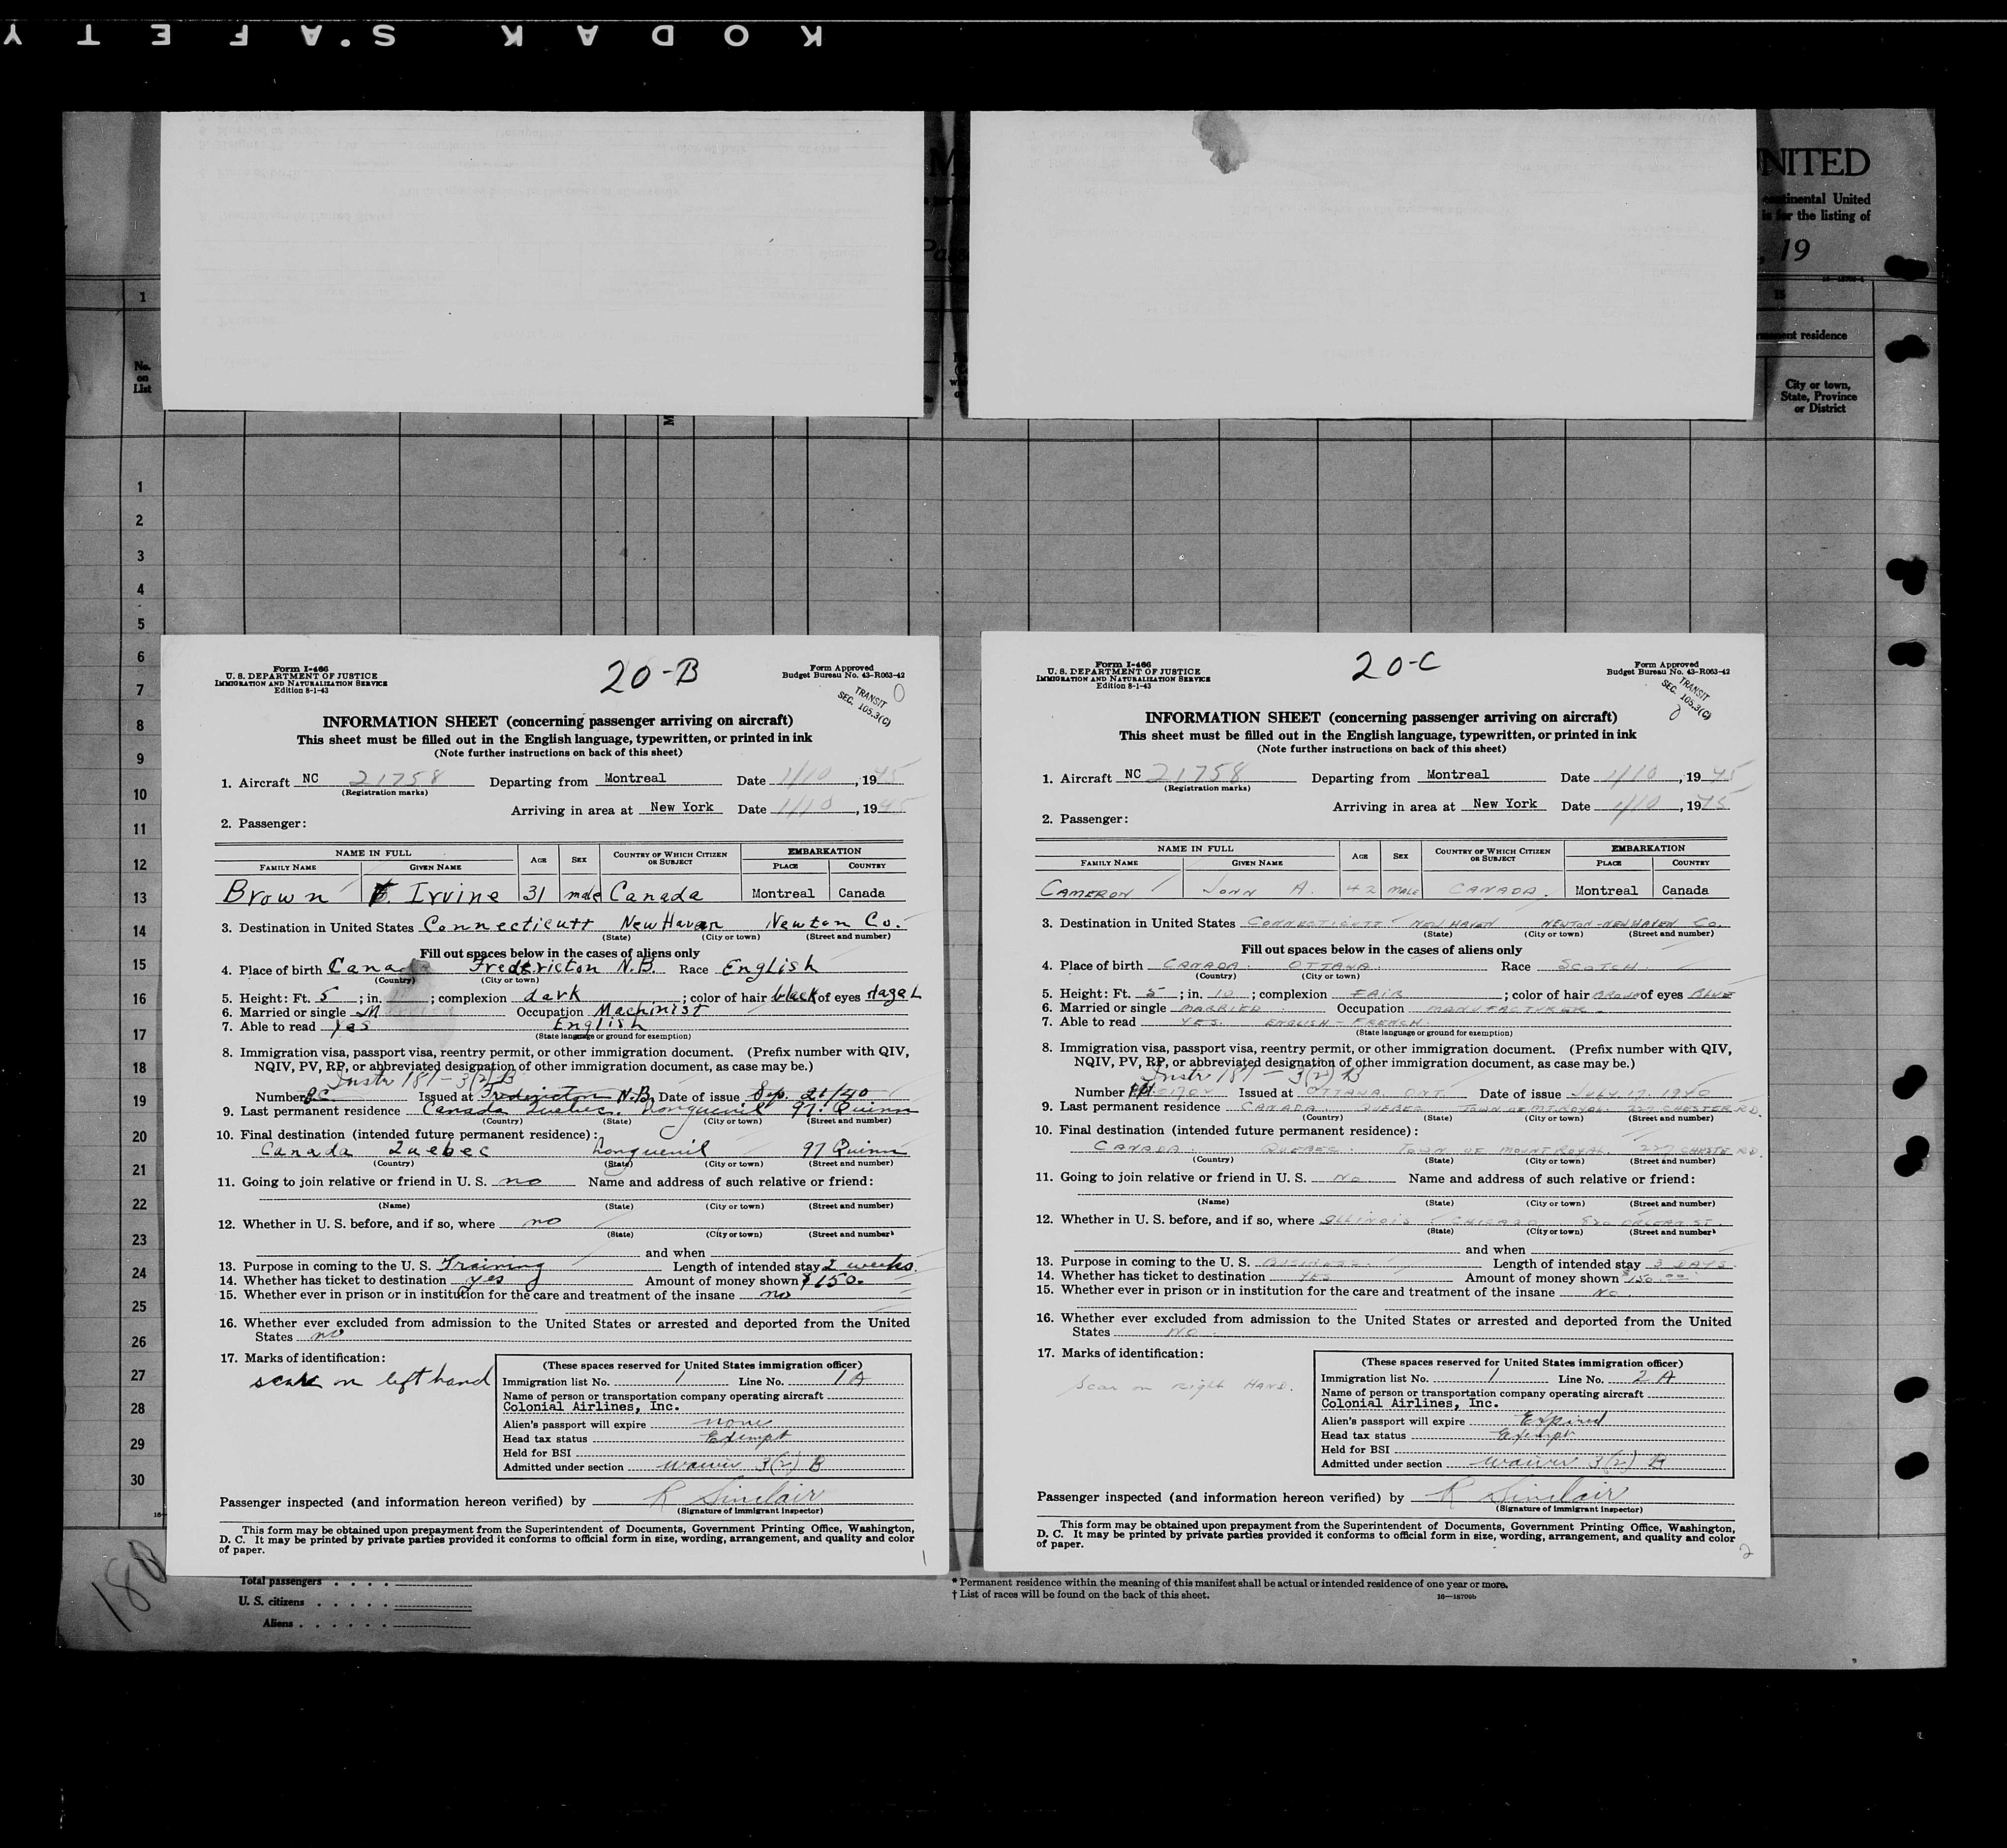 KODAK SAFETY
UNITED
continental United
is for the listing of
, 19
1
permanent residence
No.
on
List
City or town,
State, Province
or District
1
2
3
4
5
6
7
8
9
10
11
12
13
14
15
16
17
18
19
20
21
22
23
24
25
26
27
28
29
30
Form I-466
U. S. DEPARTMENT OF JUSTICE
IMMIGRATION AND NATURALIZATION SERVICE
Edition 8-1-43
20-B
Form Approved
Budget Bureau No. 43-R063-42
TRANSIT
SEC. 105.3(C)
INFORMATION SHEET (concerning passenger arriving on aircraft)
This sheet must be filled out in the English language, typewritten, or printed in ink
(Note further instructions on back of this sheet)
1. Aircraft NC 21758 Departing from Montreal Date 1/10, 1945
(Registration marks)
Arriving in area at New York Date 1/10, 1945
2. Passenger:
NAME IN FULL AGE SEX COUNTRY OF WHICH CITIZEN OR SUBJECT EMBARKATION
FAMILY NAME GIVEN NAME PLACE COUNTRY
Brown F. Irvine 31 male Canada Montreal Canada
3. Destination in United States Connecticutt New Haven Newton Co.
(State) (City or town) (Street and number)
Fill out spaces below in the cases of aliens only
4. Place of birth Canada Fredericton N.B. Race English
(Country) (City or town)
5. Height: Ft. 5 ; in. ; complexion dark ; color of hair black of eyes Hazel
6. Married or single Married Occupation Machinist
7. Able to read yes English
(State language or ground for exemption)
8. Immigration visa, passport visa, reentry permit, or other immigration document. (Prefix number with QIV,
NQIV, PV, RP, or abbreviated designation of other immigration document, as case may be.)
Instr 187-3(2)B
Number BC Issued at Fredericton N.B. Date of issue Sep. 21/40
9. Last permanent residence Canada Quebec. Longueuil 97 Quinn
(Country) (State) (City or town) (Street and number)
10. Final destination (intended future permanent residence):
Canada Quebec Longueuil 97 Quinn
(Country) (State) (City or town) (Street and number)
11. Going to join relative or friend in U. S. no Name and address of such relative or friend:
(Name) (State) (City or town) (Street and number)
12. Whether in U. S. before, and if so, where no
(State) (City or town) (Street and number)
and when
13. Purpose in coming to the U. S. Training Length of intended stay 2 weeks.
14. Whether has ticket to destination yes Amount of money shown $150.
15. Whether ever in prison or in institution for the care and treatment of the insane no
16. Whether ever excluded from admission to the United States or arrested and deported from the United
States no
17. Marks of identification:
scar on left hand
(These spaces reserved for United States immigration officer)
Immigration list No. 1 Line No. 1 A
Name of person or transportation company operating aircraft
Colonial Airlines, Inc.
Alien's passport will expire none
Head tax status Exempt
Held for BSI
Admitted under section waiver 3(2) B
Passenger inspected (and information hereon verified) by R Sinclair
(Signature of immigrant inspector)
This form may be obtained upon prepayment from the Superintendent of Documents, Government Printing Office, Washington,
D. C. It may be printed by private parties provided it conforms to official form in size, wording, arrangement, and quality and color
of paper.
1
Form I-466
U. S. DEPARTMENT OF JUSTICE
IMMIGRATION AND NATURALIZATION SERVICE
Edition 8-1-43
20-C
Form Approved
Budget Bureau No. 43-R063-42
TRANSIT
SEC. 105.3(C)
INFORMATION SHEET (concerning passenger arriving on aircraft)
This sheet must be filled out in the English language, typewritten, or printed in ink
(Note further instructions on back of this sheet)
1. Aircraft NC 21758 Departing from Montreal Date 1/10, 1945
(Registration marks)
Arriving in area at New York Date 1/10, 1945
2. Passenger:
NAME IN FULL AGE SEX COUNTRY OF WHICH CITIZEN OR SUBJECT EMBARKATION
FAMILY NAME GIVEN NAME PLACE COUNTRY
CAMERON JOHN A. 42 MALE CANADA. Montreal Canada
3. Destination in United States CONNECTICUTT NEW HAVEN NEWTON-NEW HAVEN CO.
(State) (City or town) (Street and number)
Fill out spaces below in the cases of aliens only
4. Place of birth CANADA. OTTAWA. Race SCOTCH
(Country) (City or town)
5. Height: Ft. 5 ; in. 10 ; complexion FAIR ; color of hair BROWN of eyes BLUE
6. Married or single MARRIED Occupation MANUFACTURER
7. Able to read YES. ENGLISH - FRENCH
(State language or ground for exemption)
8. Immigration visa, passport visa, reentry permit, or other immigration document. (Prefix number with QIV,
NQIV, PV, RP, or abbreviated designation of other immigration document, as case may be.)
Instr 187 - 3(2) B
Number Issued at OTTAWA, ONT. Date of issue JULY 17. 1940
9. Last permanent residence CANADA. QUEBEC TOWN OF MT ROYAL. 227 CHESTER RD.
(Country) (State) (City or town) (Street and number)
10. Final destination (intended future permanent residence):
CANADA. QUEBEC. TOWN OF MOUNT ROYAL. 227 CHESTE RD.
(Country) (State) (City or town) (Street and number)
11. Going to join relative or friend in U. S. No Name and address of such relative or friend:
(Name) (State) (City or town) (Street and number)
12. Whether in U. S. before, and if so, where ILLINOIS CHICAGO ST.
(State) (City or town) (Street and number)
and when
13. Purpose in coming to the U. S. BUSINESS. Length of intended stay 3 DAYS.
14. Whether has ticket to destination YES Amount of money shown $150.00
15. Whether ever in prison or in institution for the care and treatment of the insane No.
16. Whether ever excluded from admission to the United States or arrested and deported from the United
States NO.
17. Marks of identification:
Scar on Right HAND.
(These spaces reserved for United States immigration officer)
Immigration list No. 1 Line No. 2 A
Name of person or transportation company operating aircraft
Colonial Airlines, Inc.
Alien's passport will expire Expired
Head tax status Exempt
Held for BSI
Admitted under section waiver 3(2) B
Passenger inspected (and information hereon verified) by R Sinclair
(Signature of immigrant inspector)
This form may be obtained upon prepayment from the Superintendent of Documents, Government Printing Office, Washington,
D. C. It may be printed by private parties provided it conforms to official form in size, wording, arrangement, and quality and color
of paper.
2
180
Total passengers . . . .
U. S. citizens . . . . .
Aliens . . . . . .
* Permanent residence within the meaning of this manifest shall be actual or intended residence of one year or more.
† List of races will be found on the back of this sheet.
16—18700b